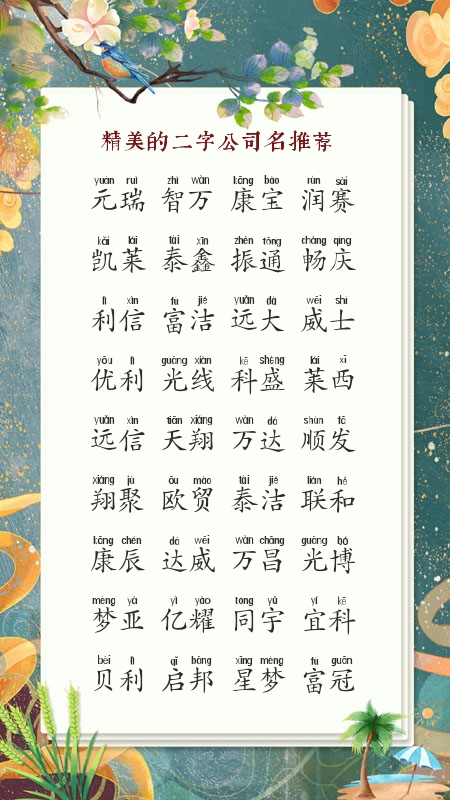 精美的二字公司名推荐
yuán ruì zhì wàn kāng bǎo rùn sài
元瑞 智万 康宝 润赛
kǎi lái tài xīn zhèn tōng chàng qìng
凯莱 泰鑫 振通 畅庆
lì xìn fù jié yuǎn dà wēi shì
利信 富洁 远大 威士
yōu lì guāng xiàn kē shèng lái xī
优利 光线 科盛 莱西
yuǎn xìn tiān xiáng wàn dá shùn fā
远信 天翔 万达 顺发
xiáng jù ōu mào tài jié lián hé
翔聚 欧贸 泰洁 联和
kāng chén dá wēi wàn chāng guāng bó
康辰 达威 万昌 光博
mèng yà yì yào tóng yǔ yí kē
梦亚 亿耀 同宇 宜科
bèi lì qǐ bāng xīng mèng fù guān
贝利 启邦 星梦 富冠